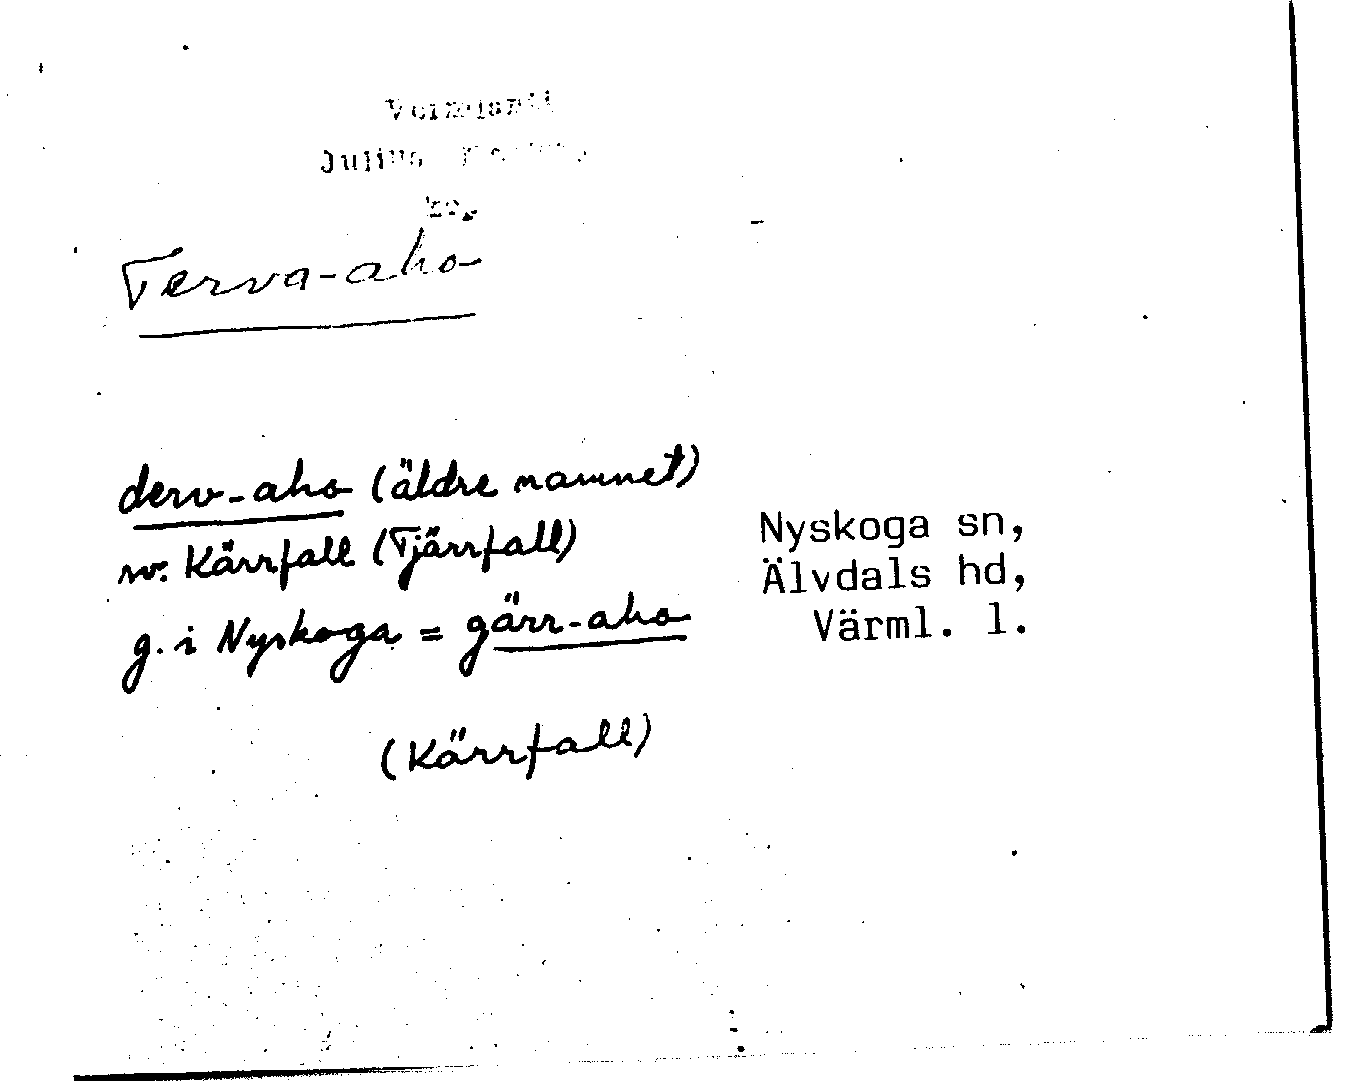 Vermlanti
Julius
Terva-aho
derv-aho (äldre namnet)
Kärrfall (Tjärrfall)
g. i Nyskoga = gärr-aho
(Kärrfall)
Nyskoga sn,
Älvdals hd,
Värml. l.